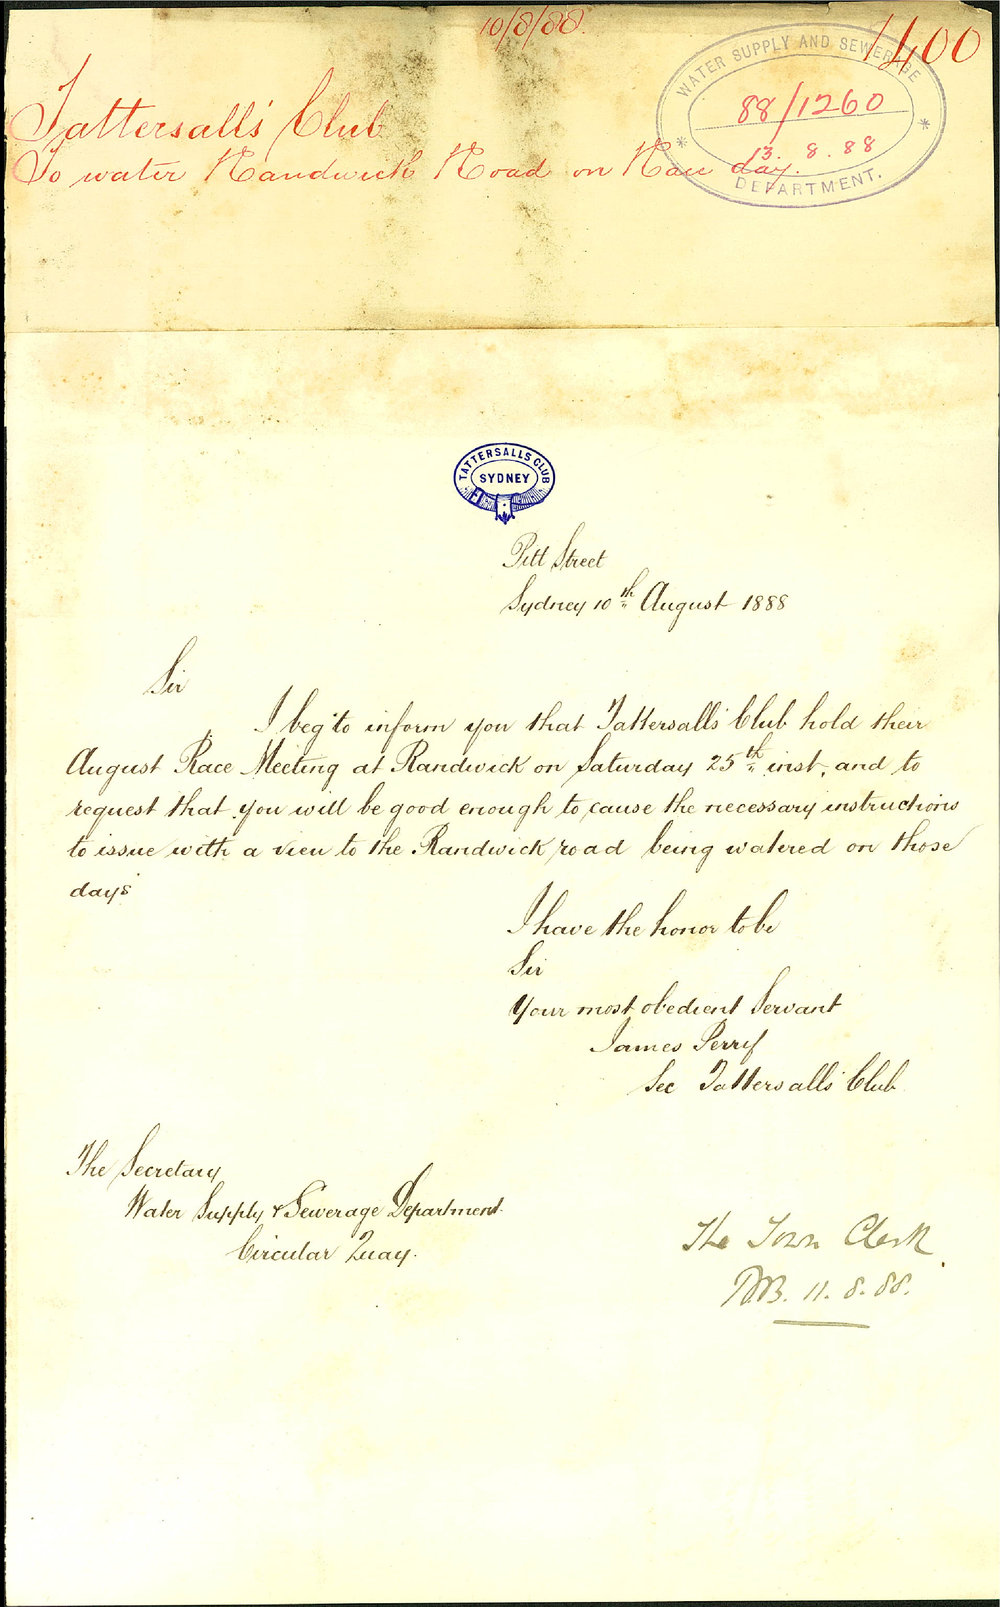 10/8/88.
1400
Tattersall's Club
To water Randwick Road on Race day.
WATER SUPPLY AND SEWERAGE
88/1260
13. 8. 88
DEPARTMENT.
TATTERSALLS CLUB
SYDNEY
Pitt Street
Sydney 10th August 1888
Sir
I beg to inform you that Tattersalls Club hold their
August Race Meeting at Randwick on Saturday 25th inst, and to
request that you will be good enough to cause the necessary instructions
to issue with a view to the Randwick road being watered on those
days
I have the honor to be
Sir
Your most obedient Servant
James Perry
Sec Tattersalls Club
The Secretary
Water Supply & Sewerage Department.
Circular Quay.
The Town Clerk
11. 8. 88.